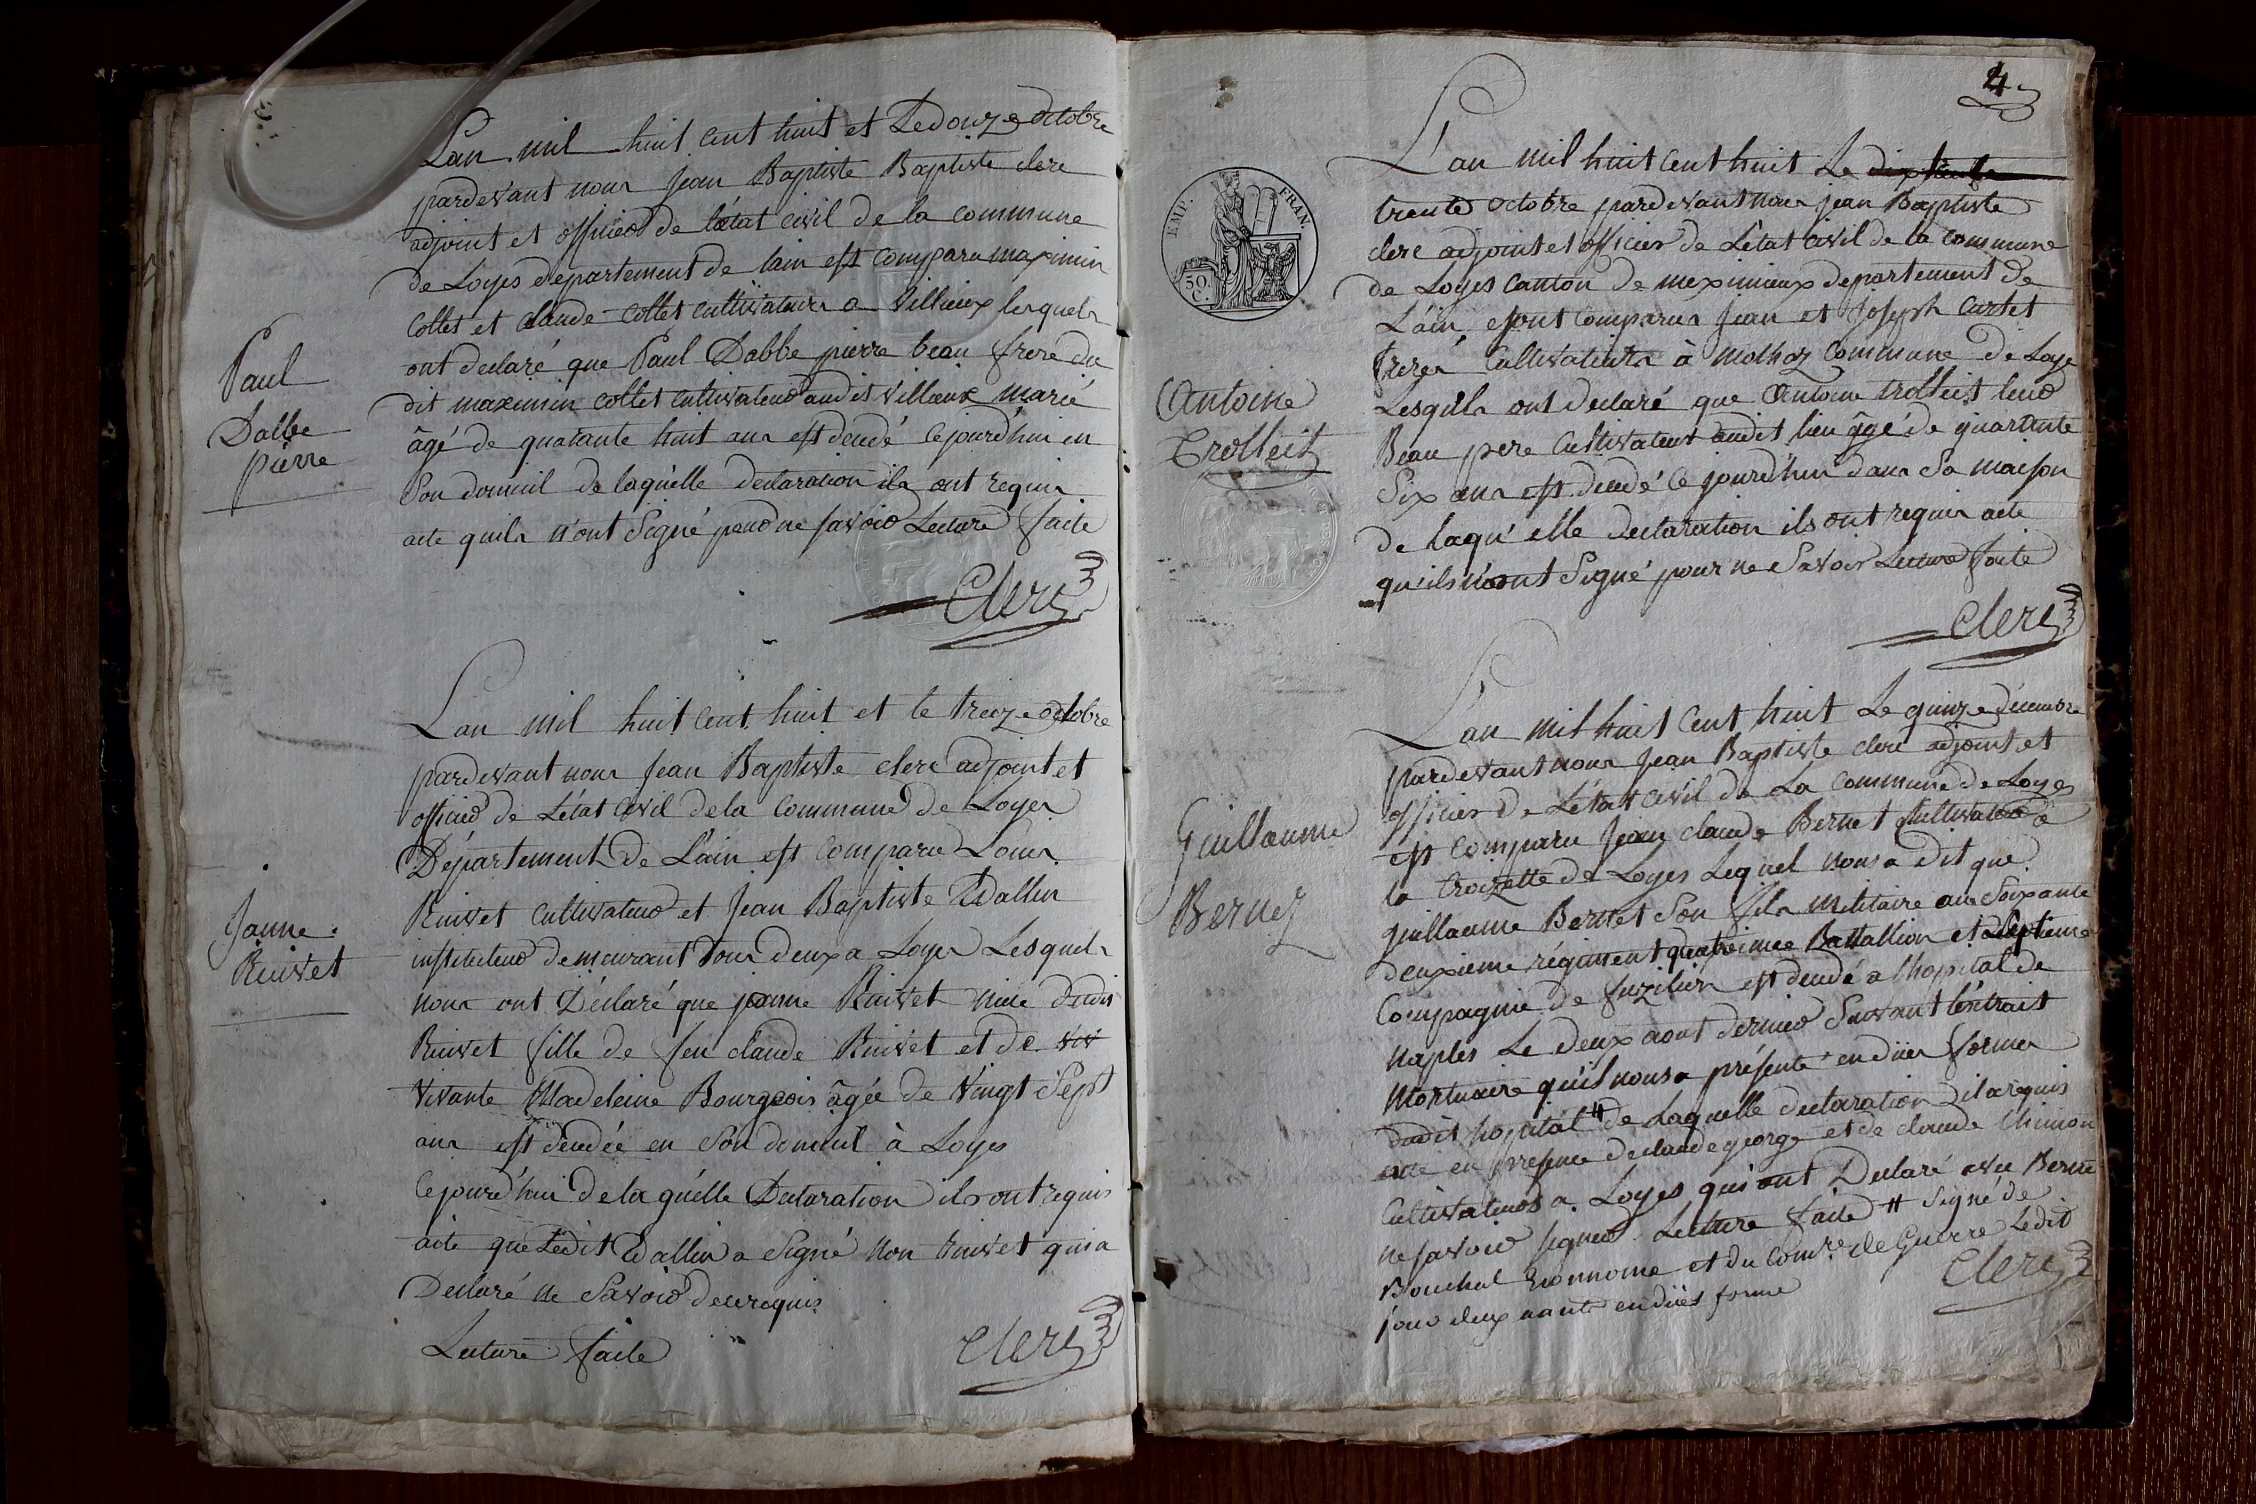 Lan mil huit cent huit et Ledouze octobre
pardevant nous Jean Baptiste Baptiste clerc
adjoint et officier de létat civil de la commune
de Loyes departement de lain est comparu maximin
Collet et claude Collet cultivateurs a Villieux lesquels
ont declaré que Paul Dabbe pierre beau frere du
dit maximin collet cultivateur audit Villieux marié
âgé de quarante huit ans est decedé cejourd'hui en
Son domicil de laquelle declaration ils ont requis
acte quils n'ont Signé pour ne savoir Lecture faite
Clerc
Paul
Dabbe
pierre
Lan mil huit cent huit et le treize octobre
pardevant nous Jean Baptiste clerc adjoint et
officier de L'état Civil de la Commune de Loyes
Département De L'ain est Comparu Louis
Ruivet cultivateur et Jean Baptiste Dallin
instituteur demeurant tous deux a Loyes Lesquels
nous ont Déclaré que jeanne Ruivet niece dudit
Ruivet fille de feu claude Ruivet et de viv
vivante Madeleine Bourgeois âgée de Vingt Sept
ans est decedée en Son domicil à Loyes
Cejourd'hui de la quelle Declaration ils ont requis
acte que Ledit Dallin a Signé non Ruivet qui a
Declaré ne Savoir de ce requis
Lecture faite
Clerc
Janne
Ruivet
4
EMP. FRAN.
50.
C.
L'an mil huit cent huit Le
trente octobre pardevant nous jean Baptiste
clerc adjoint et officier de L'état civil de la commune
de Loyes canton de meximieux departement de
L'ain, sont comparus Jean et Joseph Curtet
freres Cultivateurs à Molhoz Commune de Loye
Lesquels ont declaré que Antoine trolleit leur
Beau pere Cultivateur audit lieu âgé de quarante
Six ans est decedé ce jourd'hui dans Sa maison
de laqu'elle declaration ils ont requis acte
qu'ils n'ont Signé pour ne Savoir Lecture faite
Clerc
Antoine
Trolleit
L'an mil huit Cent huit Le quinze décembre
pardevant nous Jean Baptiste clerc adjoint et
officier de L'état civil de La Commune de Loyes
est Comparu Jean claude Bernet Cultivateur a
la Croizette de Loyes Lequel nous a dit que
guillaume Bernet Son fils militaire au Soixante
deuxieme régiment quatrieme Battallion et Septieme
Compagnie de fuzilier est decedé a l'hopital de
naples Le deux aout dernier Suivant l'extrait
mortuaire qu'il nous a présenté en düe forme
dudit hopital # de Laquelle declaration il a requis
acte en presence de claude george et de claude Chinion
Cultivateurs a Loyes qui ont Declaré avec Berne
ne Savoir signer Lecture faite # signé de
Bouchal Econnome et du Comre. de Guerre Ledit
jour deux aoute en düe forme
Clerc
Guillaume
Bernez